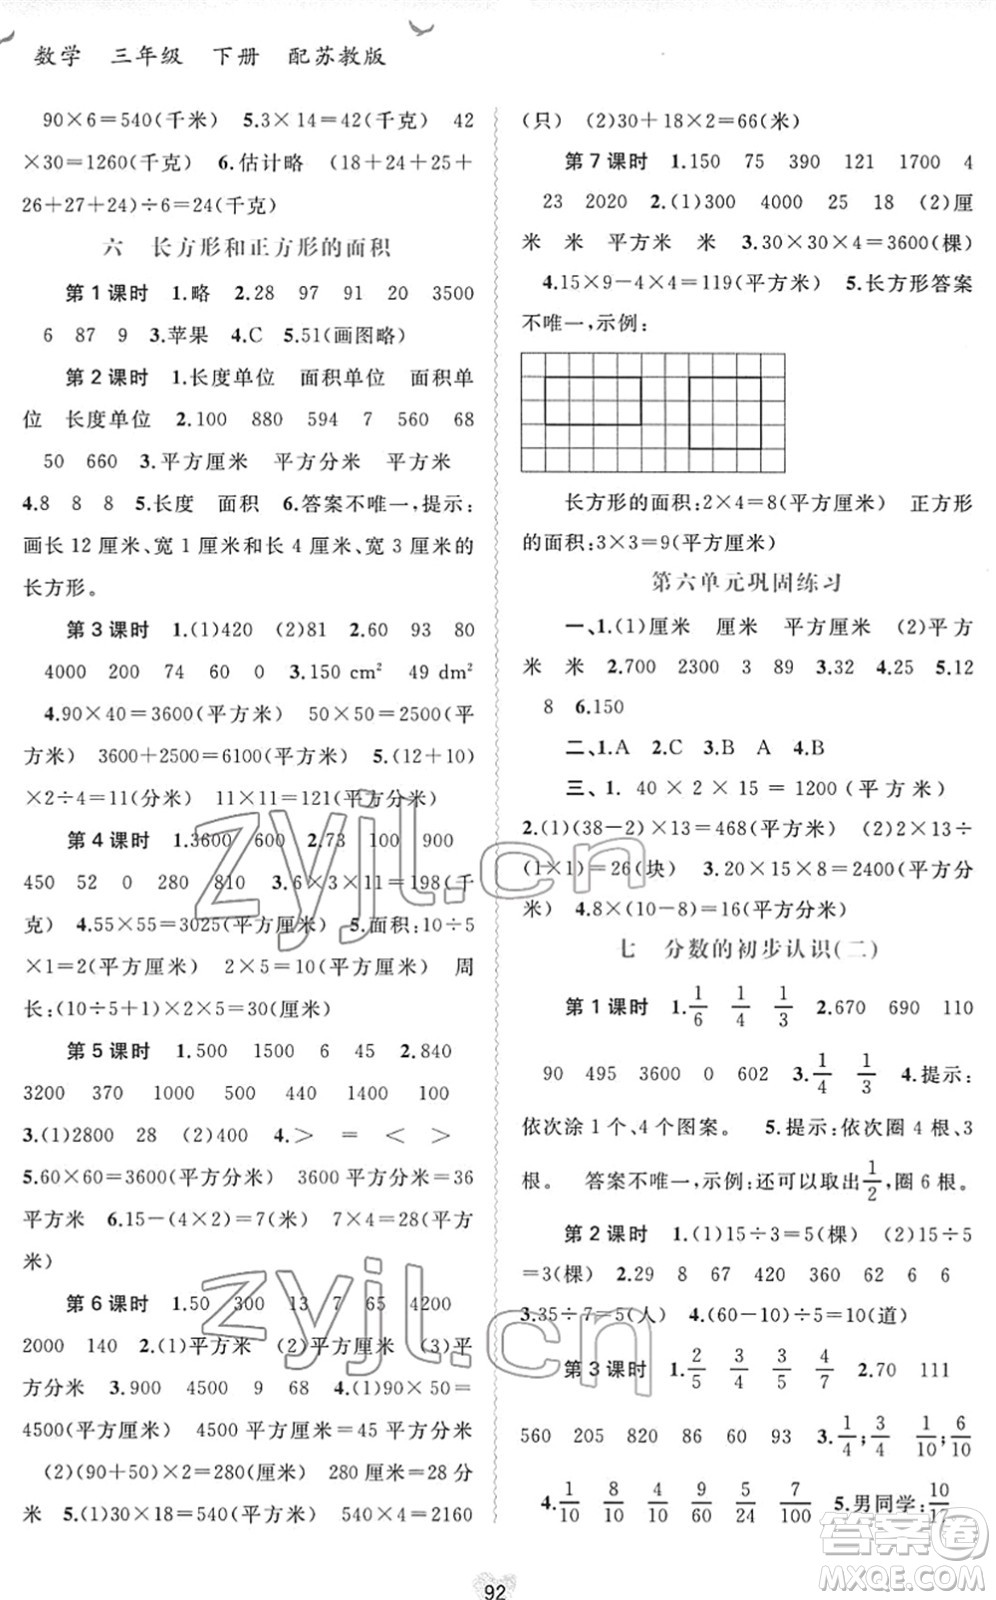 数学 三年级 下册 配苏教版
90×6=540(千米) 5.3×14=42(千克) 42
×30=1260(千克) 6.估计略 (18+24+25+
26+27+24)÷6=24(千克)
六 长方形和正方形的面积
第1课时 1.略 2.28 97 91 20 3500
6 87 9 3.苹果 4.C 5.51(画图略)
第2课时 1.长度单位 面积单位 面积单
位 长度单位 2.100 880 594 7 560 68
50 660 3.平方厘米 平方分米 平方米
4.8 8 8 5.长度 面积 6.答案不唯一,提示:
画长12厘米、宽1厘米和长4厘米、宽3厘米的
长方形。
第3课时 1.(1)420 (2)81 2.60 93 80
4000 200 74 60 0 3.150 cm² 49 dm²
4.90×40=3600(平方米) 50×50=2500(平
方米) 3600+2500=6100(平方米) 5.(12+10)
×2÷4=11(分米) 11×11=121(平方分米)
第4课时 1.3600 600 2.73 100 900
450 52 0 280 810 3.6×3×11=198(千
克) 4.55×55=3025(平方厘米) 5.面积:10÷5
×1=2(平方厘米) 2×5=10(平方厘米) 周
长:(10÷5+1)×2×5=30(厘米)
第5课时 1.500 1500 6 45 2.840
3200 370 1000 500 440 1400 100
3.(1)2800 28 (2)400 4.> = < >
5.60×60=3600(平方分米) 3600平方分米=36
平方米 6.15-(4×2)=7(米) 7×4=28(平方
米)
第6课时 1.50 300 13 7 65 4200
2000 140 2.(1)平方米 (2)平方厘米 (3)平
方分米 3.900 4500 9 68 4.(1)90×50=
4500(平方厘米) 4500平方厘米=45平方分米
(2)(90+50)×2=280(厘米) 280厘米=28分
米 5.(1)30×18=540(平方米) 540×4=2160
(只) (2)30+18×2=66(米)
第7课时 1.150 75 390 121 1700 4
23 2020 2.(1)300 4000 25 18 (2)厘
米 米 平方米 米 3.30×30×4=3600(棵)
4.15×9-4×4=119(平方米) 5.长方形答案
不唯一,示例:
长方形的面积:2×4=8(平方厘米) 正方形
的面积:3×3=9(平方厘米)
第六单元巩固练习
一、1.(1)厘米 厘米 平方厘米 (2)平方
米 米 2.700 2300 3 89 3.32 4.25 5.12
8 6.150
二、1.A 2.C 3.B A 4.B
三、1. 40×2×15=1200(平方米)
2.(1)(38-2)×13=468(平方米) (2)2×13÷
(1×1)=26(块) 3.20×15×8=2400(平方分
米) 4.8×(10-8)=16(平方分米)
七 分数的初步认识(二)
第1课时 1.1/6 1/4 1/3 2.670 690 110
90 495 3600 0 602 3.1/4 1/3 4.提示:
依次涂1个、4个图案。 5.提示:依次圈4根、3
根。 答案不唯一,示例:还可以取出1/2,圈6根。
第2课时 1.(1)15÷3=5(棵) (2)15÷5
=3(棵) 2.29 8 67 420 380 62 6 6
3.35÷7=5(人) 4.(60-10)÷5=10(道)
第3课时 1.2/5 3/4 3/5 4/7 2.70 111
560 205 820 86 60 93 3.1/4;3/4 1/10;6/10
4.1/10 8/10 9/60 2/24 7/100 5.男同学:10/17
92
zyjl.cn
zyjl.cn
答案圈
MXQE.COM